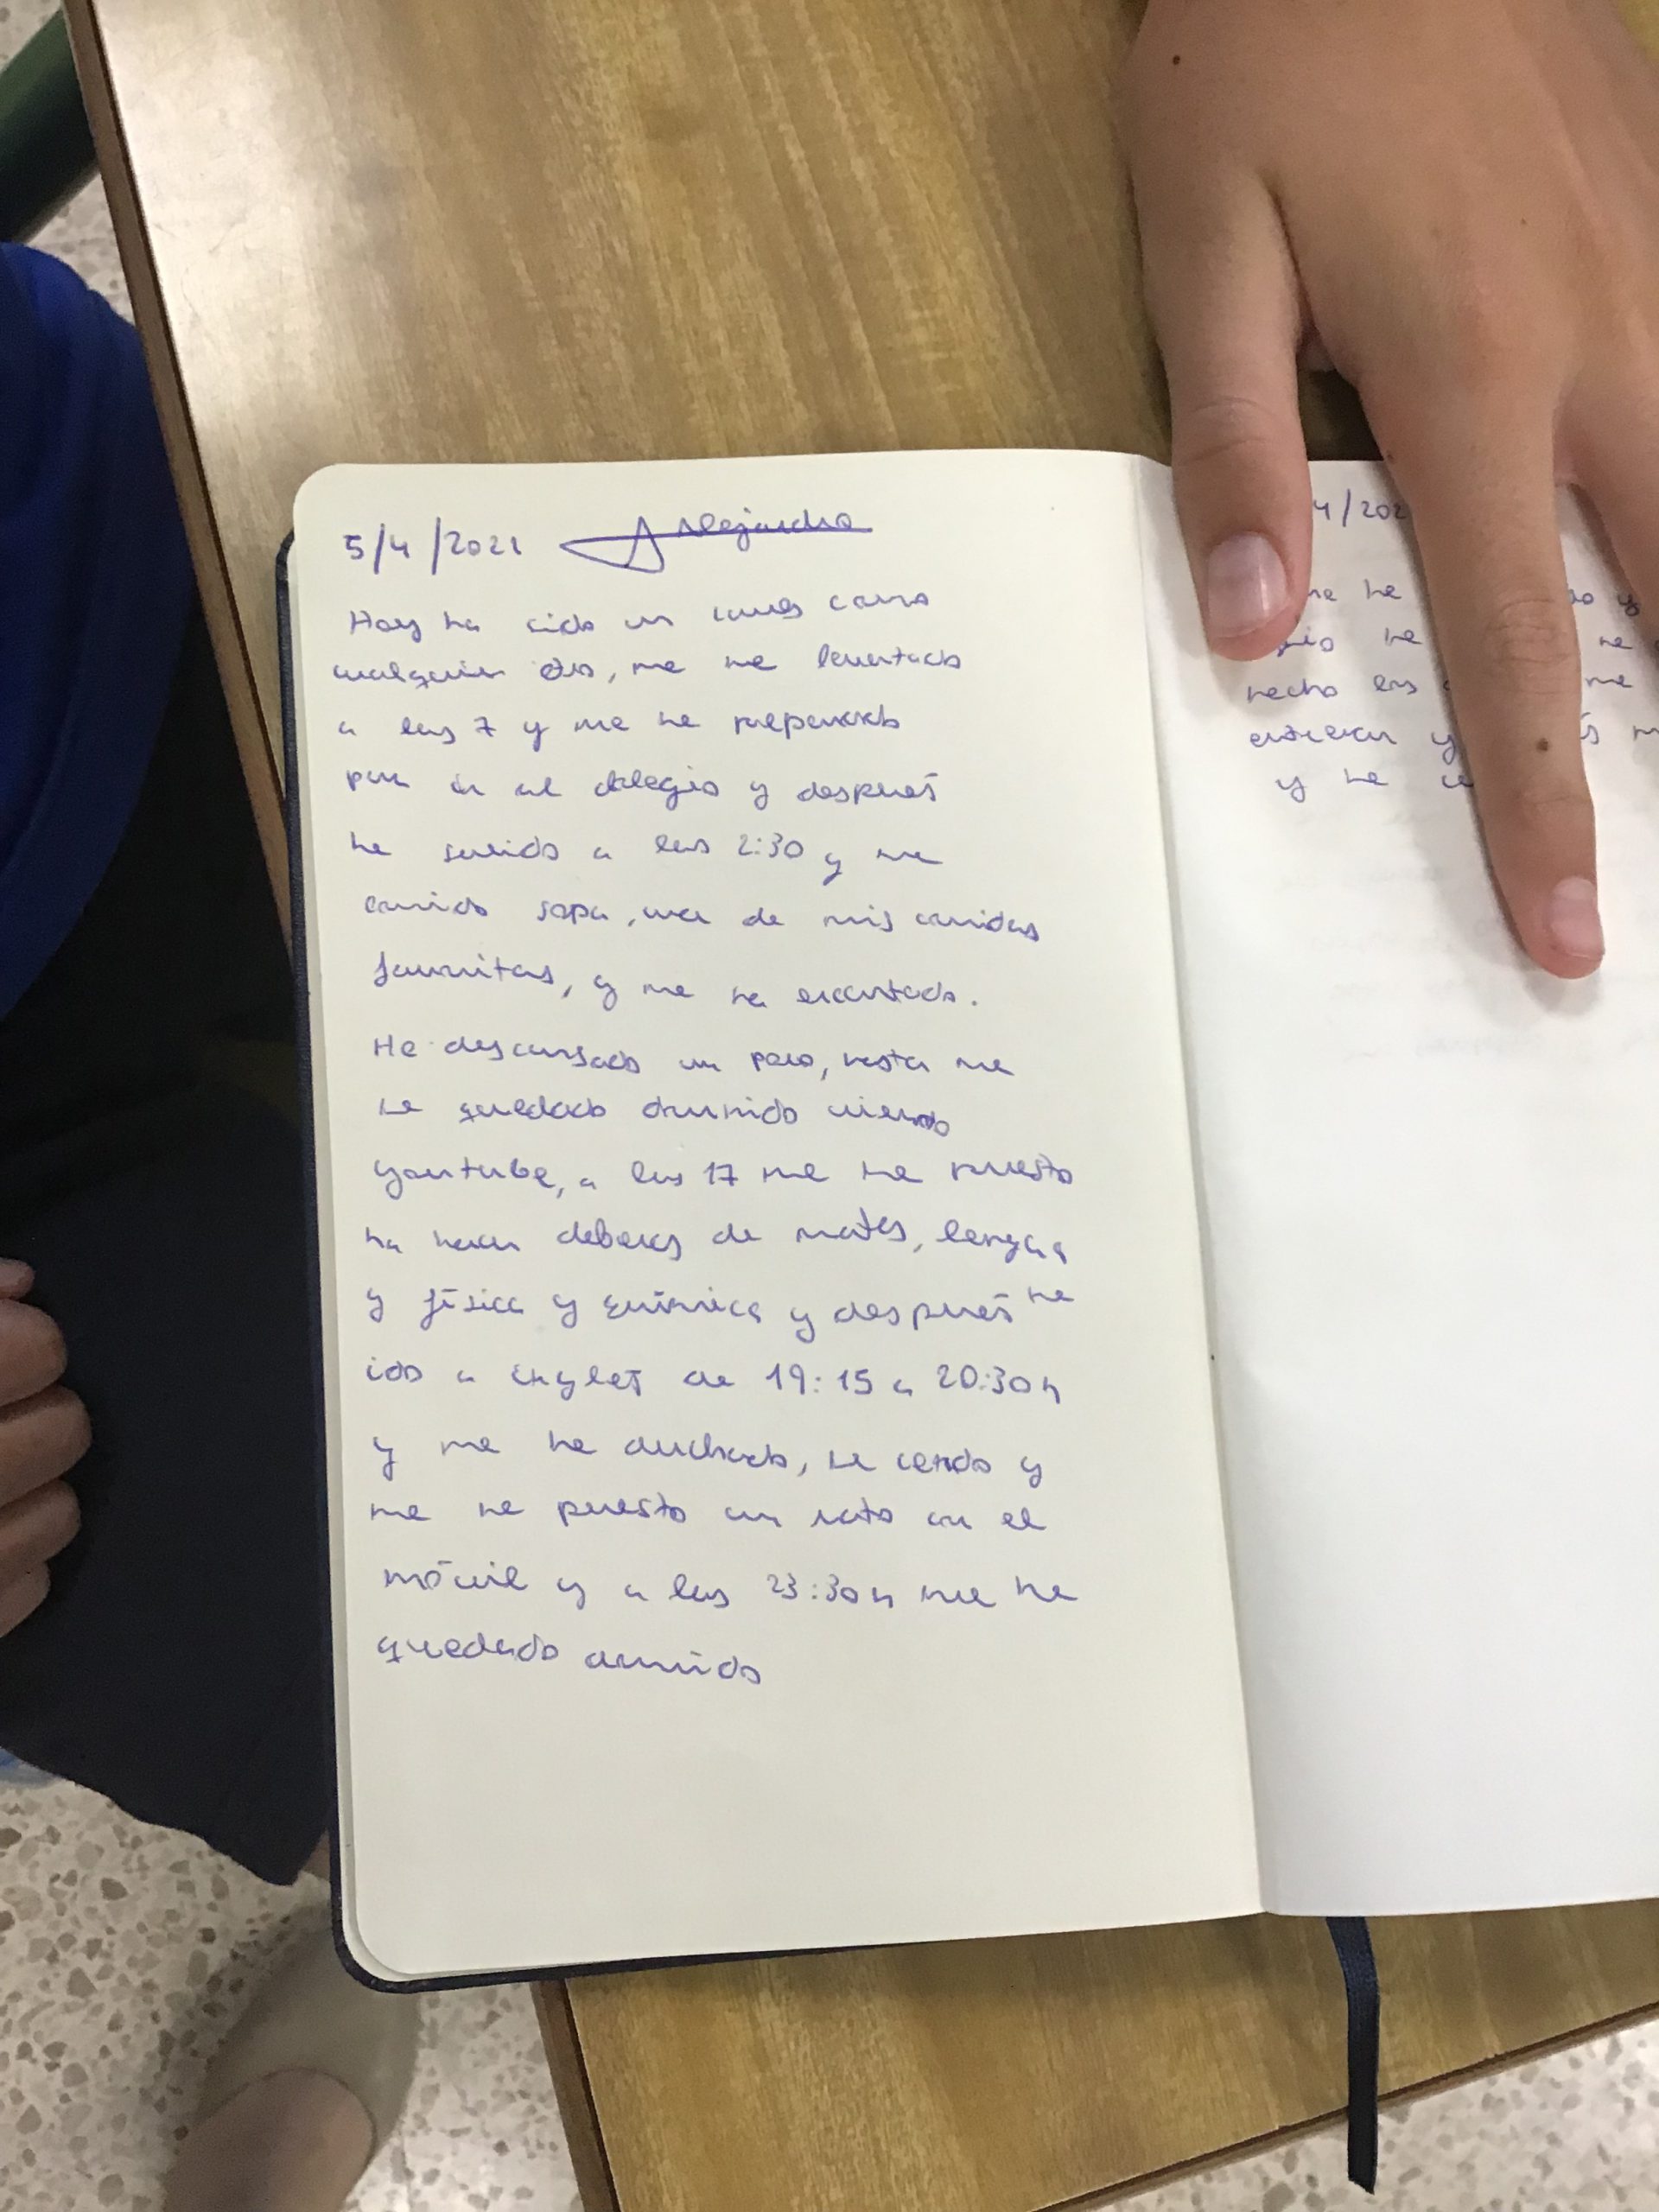 5/4/2021 Alejandro
Hoy ha sido un lunes como
cualquier otro, me he levantado
a las 7 y me he preparado
para ir al colegio y después
he salido a las 2:30 y he
comido sopa, una de mis comidas
favoritas, y me ha encantado.
He descansado un poco, hasta me
he quedado dormido viendo
youtube, a las 17 me he puesto
ha hacer deberes de mates, lengua
y física y química y después he
ido a inglés de 19:15 a 20:30h
y me he duchado, he cenado y
me he puesto un rato en el
móvil y a las 23:30h me he
quedado dormido
4/202
me he y
he he
hecho los me
y
y he